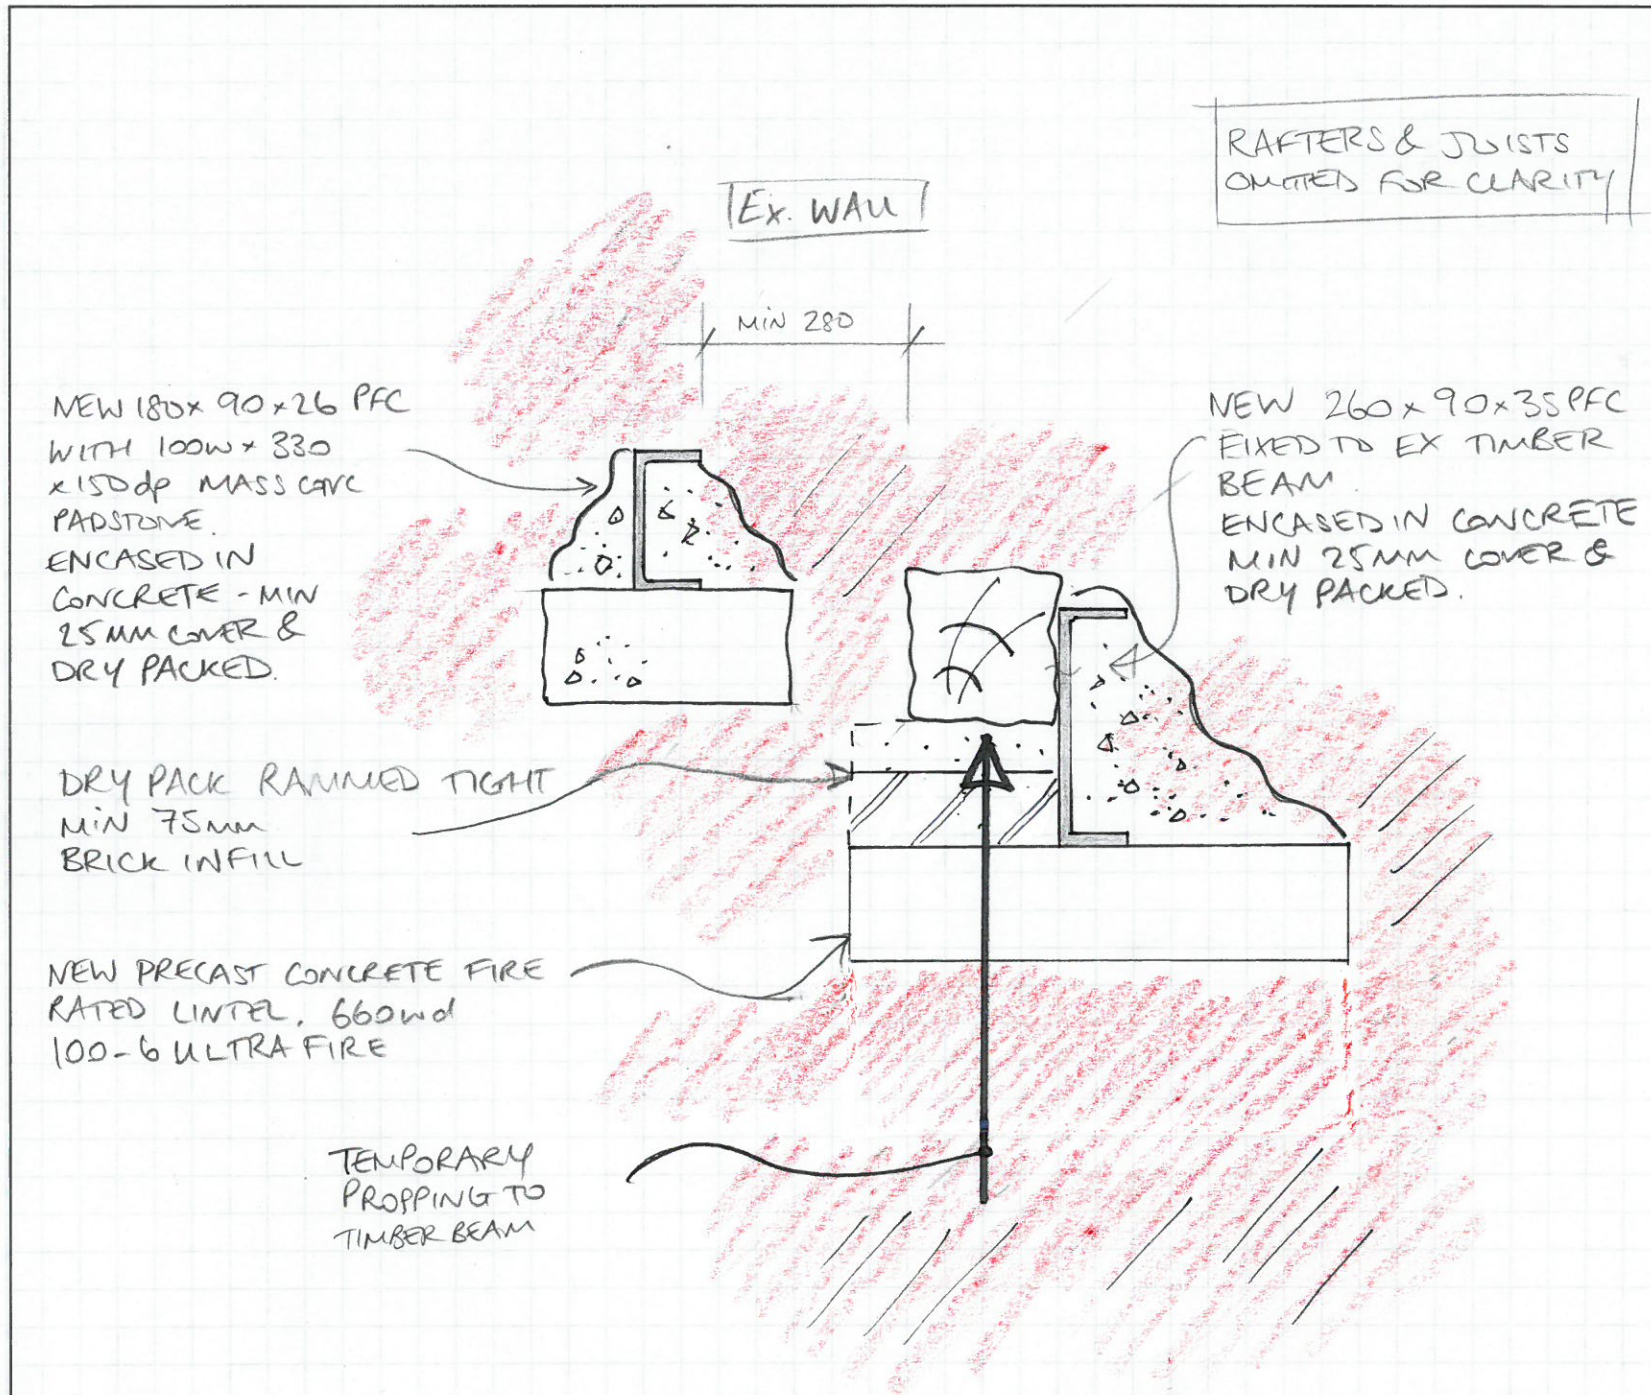 RAFTERS & JOISTS
OMITTED FOR CLARITY
EX. WALL
MIN 280
NEW 180x 90x26 PFC
WITH 100w x 330
x150dp MASS CONC
PADSTONE.
ENCASED IN
CONCRETE - MIN
25MM COVER &
DRY PACKED.
NEW 260x90x35PFC
FIXED TO EX TIMBER
BEAM
ENCASED IN CONCRETE
MIN 25MM COVER &
DRY PACKED.
DRY PACK RAMMED TIGHT
MIN 75mm
BRICK INFILL
NEW PRECAST CONCRETE FIRE
RATED LINTEL. 660wd
100-6 ULTRA FIRE
TEMPORARY
PROPPING TO
TIMBER BEAM